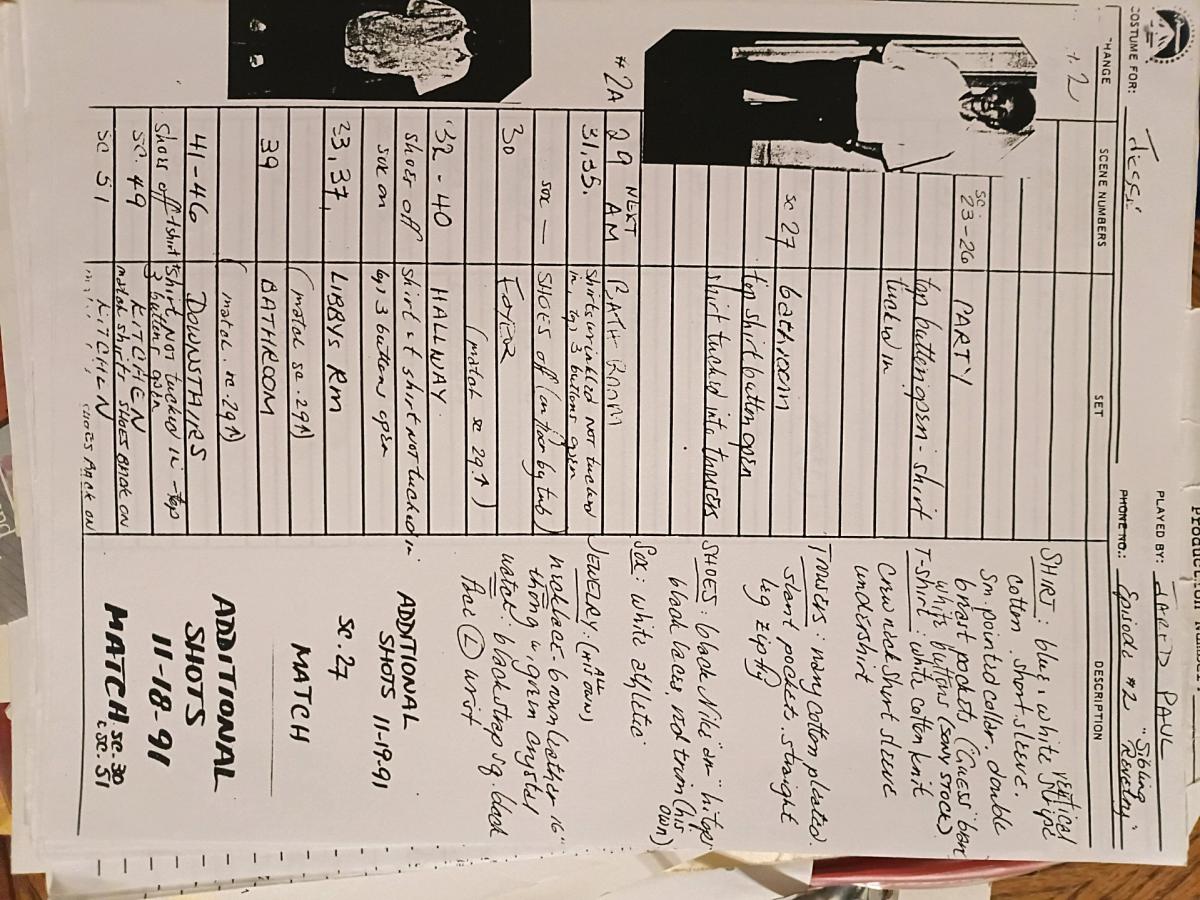 Production Num
COSTUME FOR: Jesse
PLAYED BY: JARED PAUL
PHONE NO.: Episode #2 "Sibling Revelry"
CHANGE
SCENE NUMBERS
SET
DESCRIPTION
# 2
sc. 23-26
PARTY
top button open - shirt
tucked in
sc 27
bathroom
top shirt button open
shirt tucked into trousers
#2A
29 NEXT AM
BATHROOM
31, 35,
shirts wrinkled not tucked
in, 3 buttons open
sox —
SHOES off (on floor by tub)
30
FOYER
(match sc 29 ↑)
32 - 40
HALLWAY
shoes off
shirt & t shirt NOT tucked in
sox on
3 buttons open
33, 37,
LIBBYS RM
(match sc. 29 ↑)
39
BATHROOM
(match sc 29 ↑)
41-46
DOWNSTAIRS
shoes off
tshirt & shirt NOT tucked in - top
3 buttons open
sc. 49
KITCHEN
match shirts SHOES BACK ON
sc 51
KITCHEN
SHOES BACK ON
SHIRT: blue & white vertical stripe
cotton. short sleeve.
sm. pointed collar. double
breast pockets (Guess brown
white buttons (sony stock)
T-shirt: white cotton knit
crew neck short sleeve
undershirt
Trousers: navy cotton pleated.
slant pockets. straight
leg zip fly
SHOES: black Nike "air" hitop
black laces, red trim (his own)
Sox: white athletic
JEWELRY: (ALL HIS OWN)
necklace - brown leather 16"
thong w. green crystal
watch: black strap sq. black
face (L) wrist
ADDITIONAL
SHOTS 11-19-91
sc. 27
MATCH
ADDITIONAL
SHOTS
11-18-91
MATCH sc. 30
& sc. 51